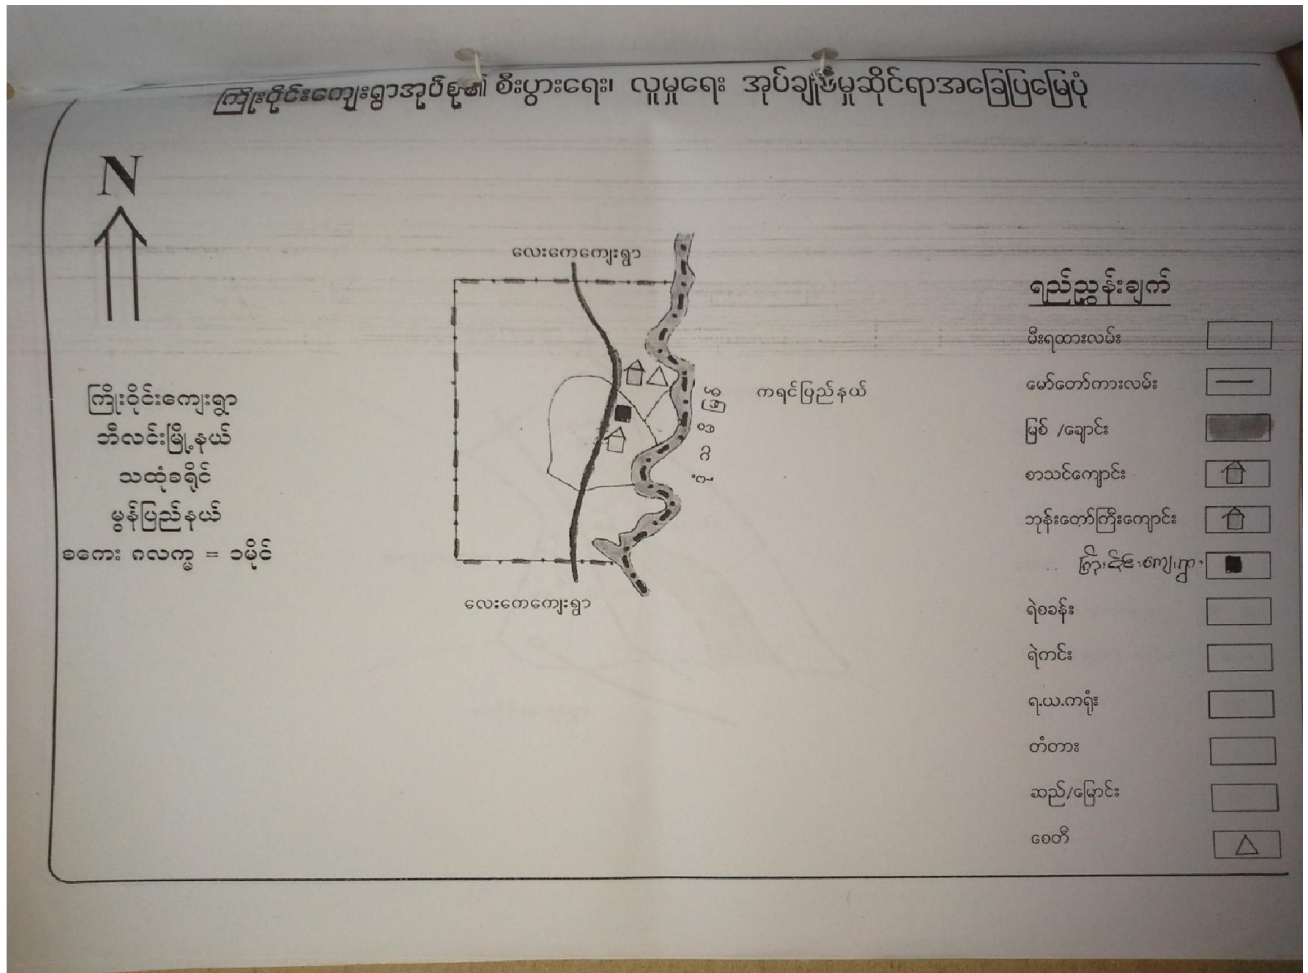 ကြိုးဝိုင်းကျေးရွာအုပ်စု၏ စီးပွားရေး၊ လူမှုရေး အုပ်ချုပ်မှုဆိုင်ရာအခြေပြမြေပုံ
N
ကြိုးဝိုင်းကျေးရွာ
ဘီလင်းမြို့နယ်
သထုံခရိုင်
မွန်ပြည်နယ်
စကေး ၈လက္မ = ၁မိုင်
လေးကေကျေးရွာ
ကရင်ပြည်နယ်
မြစ်
လေးကေကျေးရွာ
ရည်ညွှန်းချက်
မီးရထားလမ်း
မော်တော်ကားလမ်း
မြစ် /ချောင်း
စာသင်ကျောင်း
ဘုန်းတော်ကြီးကျောင်း
ကြိုးဝိုင်းကျေးရွာ
ရဲစခန်း
ရဲကင်း
ရ.ယ.ကရုံး
တံတား
ဆည်/မြောင်း
စေတီ